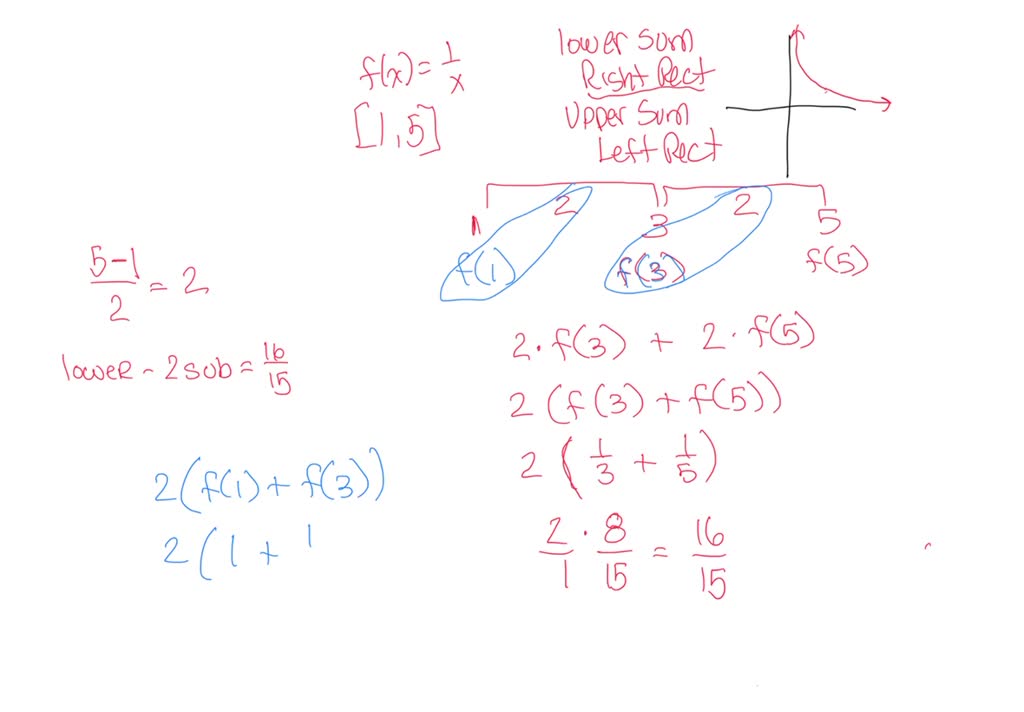 f(x) = 1/x
[1,5]
lower sum
Right Rect
Upper Sum
Left Rect
1 2 3 2 5
f(1) f(3) f(5)
5-1/2 = 2
lower - 2 sub = 16/15
2·f(3) + 2·f(5)
2(f(3) + f(5))
2(1/3 + 1/5)
2/1 · 8/15 = 16/15
2(f(1) + f(3))
2(1 + 1